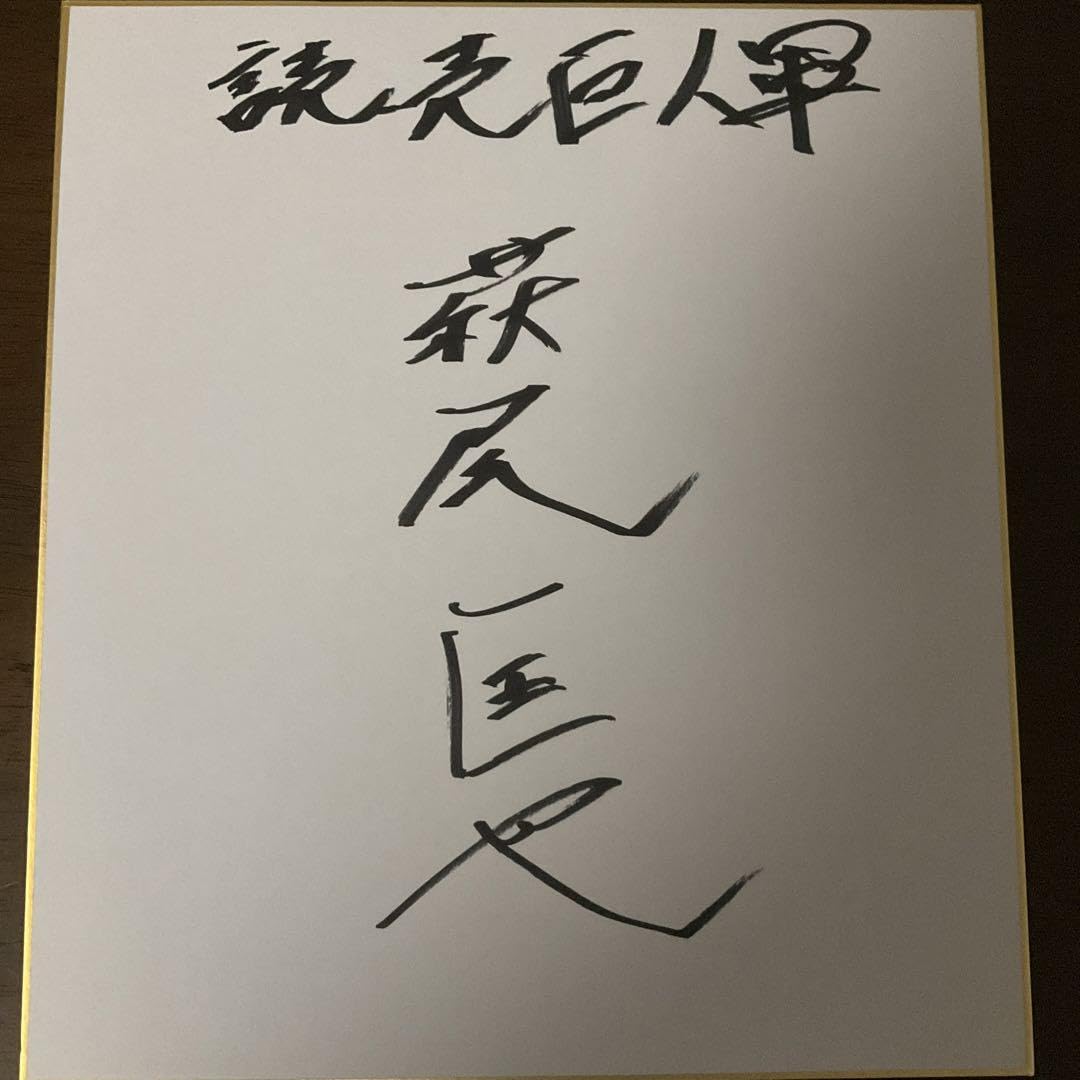 読売巨人軍
萩尾匡也